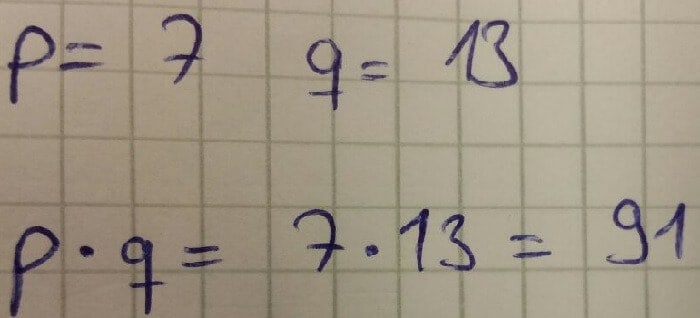 p = 7 q = 13
p · q = 7 · 13 = 91